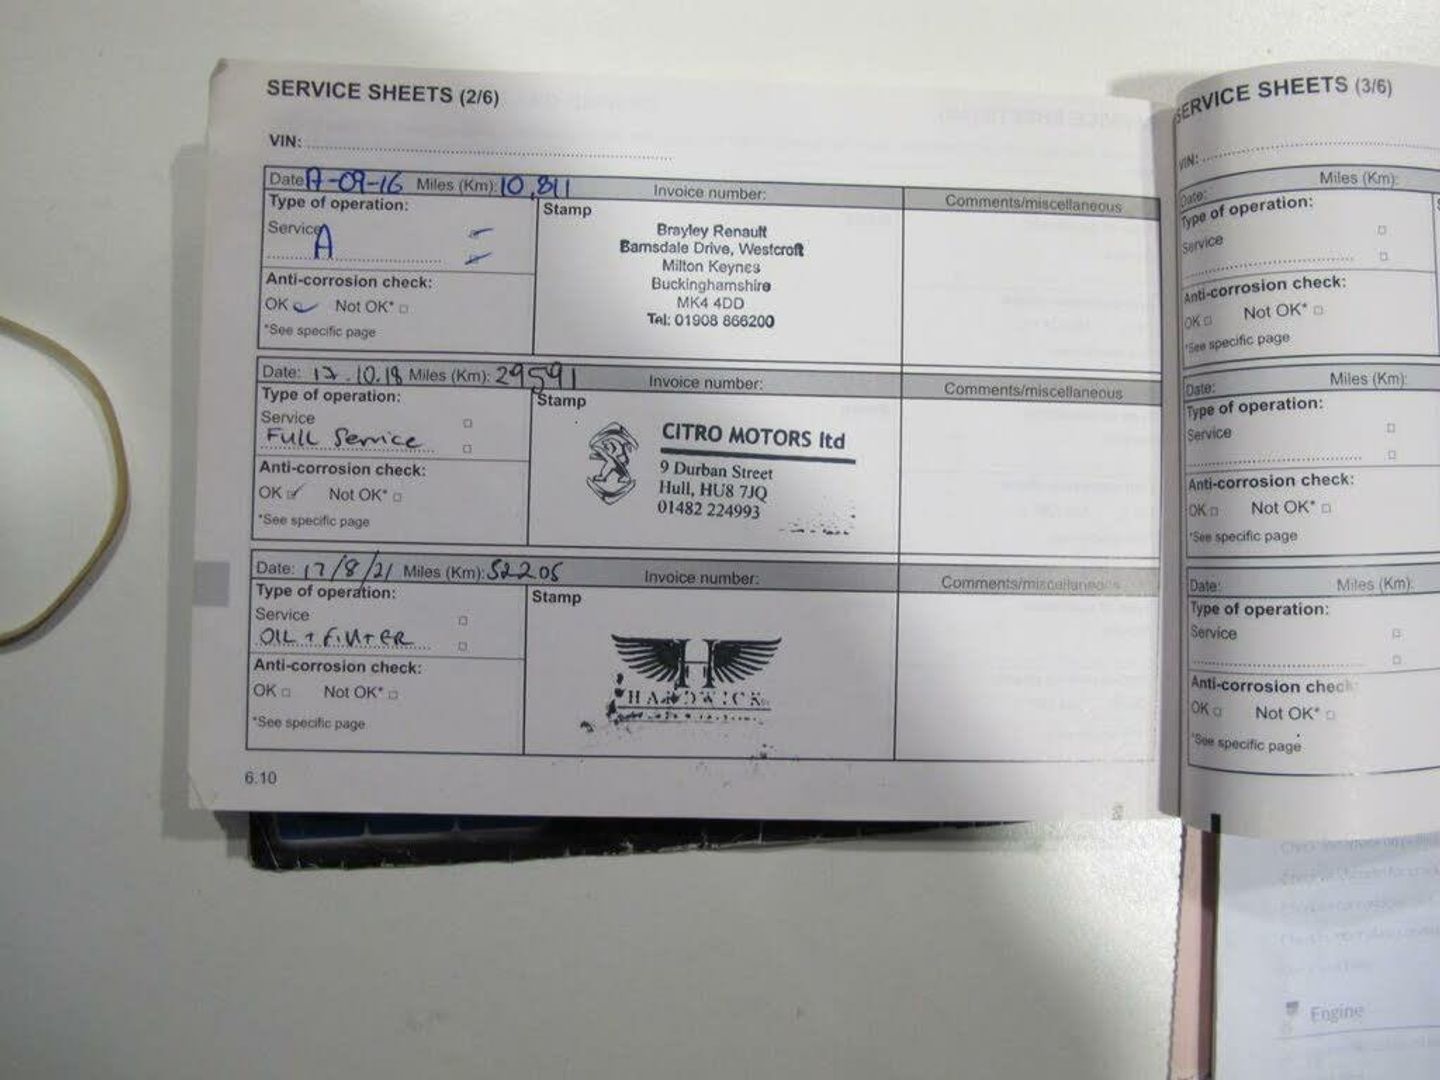 SERVICE SHEETS (2/6)
VIN:
Date: -09-16 Miles (Km): 10,811 Invoice number: Comments/miscellaneous
Type of operation:
Service
A
Anti-corrosion check:
OK Not OK*
*See specific page
Stamp
Brayley Renault
Barnsdale Drive, Westcroft
Milton Keynes
Buckinghamshire
MK4 4DD
Tel: 01908 866200
Date: 17.10.18 Miles (Km): 29591 Invoice number: Comments/miscellaneous
Type of operation:
Service
FULL Service
Anti-corrosion check:
OK Not OK*
*See specific page
Stamp
CITRO MOTORS ltd
9 Durban Street
Hull, HU8 7JQ
01482 224993
Date: 17/8/21 Miles (Km): 52205 Invoice number: Comments/miscellaneous
Type of operation:
Service
OIL + FILTER
Anti-corrosion check:
OK Not OK*
*See specific page
Stamp
HARDWICK
6.10
SERVICE SHEETS (3/6)
VIN:
Date: Miles (Km):
Type of operation:
Service
Anti-corrosion check:
OK Not OK*
*See specific page
Date: Miles (Km):
Type of operation:
Service
Anti-corrosion check:
OK Not OK*
*See specific page
Date: Miles (Km):
Type of operation:
Service
Anti-corrosion check:
OK Not OK*
*See specific page
Engine